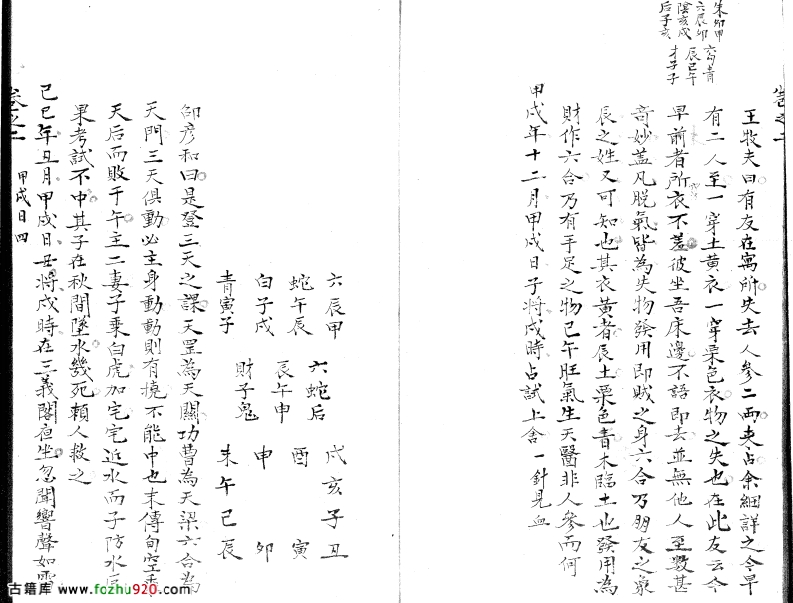 朱卯甲
六辰卯
陰亥戌
后子亥
六勾青
辰巳午
才子子
卷之二
王牧夫曰有友在寓所失去人參二兩来占余細詳之今早
有二人至一穿土黄衣一穿栗色衣物之失也在此友云今
早前者所衣不差彼坐吾床邊不語即去並無他人至数甚
奇妙盖凡脱氣皆為失物發用即賊之身六合乃朋友之象
辰之姓又可知也其衣黄者辰土栗色青木臨土也發用為
財作六合乃有手足之物巳午旺氣生天醫非人參而何
甲戌年十二月甲戌日子將戌時占試上舍一針見血
六辰甲
蛇午辰
白子戌
青寅子
六蛇后
辰午申
財子鬼
戌亥子丑
酉 寅
申 卯
未午巳辰
邵彦和曰是登三天之課天罡為天關功曹為天梁六合為
天門三天俱動必主身動動則有撓不能中也末傳旬空乘
天后而敗于午主二妻子乘白虎加宅宅近水而子防水厄
果考試不中其子在秋間墜水幾死賴人救之
己巳年丑月甲戌日丑將戌時在三義閣夜坐忽聞響聲如雪
卷之二
甲戌日四
古籍库 www.fozhu920.com